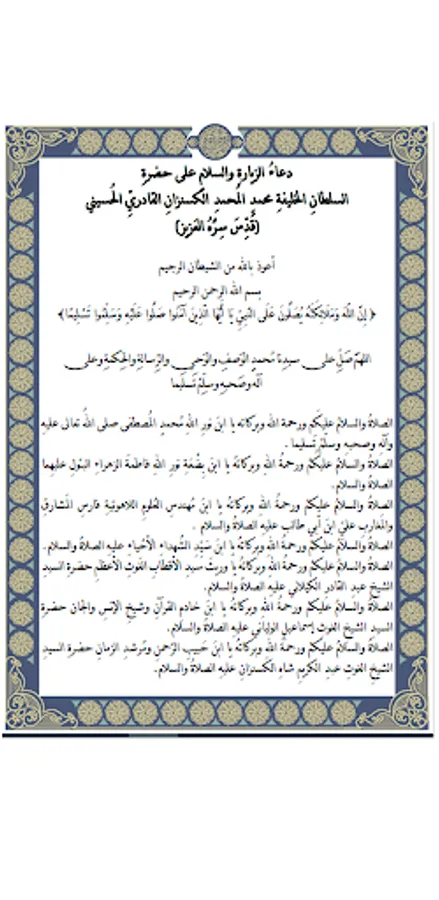 دعاءُ الزيارةِ والسلامِ على حضرةِ
السلطانِ الخليفةِ محمدِ المُحمدِ الكسنزانِ القادريِّ الحُسينيِ
(قُدِّسَ سِرُّهُ العَزيز)
أعوذ بالله من الشيطان الرجيم
بسم الله الرحمن الرحيم
﴿ إِنَّ اللَّهَ وَمَلَائِكَتَهُ يُصَلُّونَ عَلَى النَّبِيِّ يَا أَيُّهَا الَّذِينَ آمَنُوا صَلُّوا عَلَيْهِ وَسَلِّمُوا تَسْلِيمًا ﴾
اللهمّ صَلِّ على سيدِنا مُحمدٍ الوَصفِ والوَحيِ والرِّسالةِ والحِكمَةِ وعلى
آلهِ وصَحبِهِ وسلِّمْ تَسليما
الصلاةُ والسلامُ عليكم ورحمة الله وبركاته يا ابنَ نورِ اللهِ مُحمدٍ المُصطفى صلى اللهُ تعالى عليهِ
وآلهِ وصحبِهِ وسلِّم تسليما .
الصلاةُ والسلامُ عليكُم ورحمةُ اللهِ وبركاتُهُ يا ابنَ بِضْعَةِ نورِ اللهِ فاطمةَ الزهراءِ البتول عليهما
الصلاةُ والسلام.
الصلاةُ والسلامُ عليكم ورحمةُ اللهِ وبركاتُهُ يا ابنَ مُهندسِ العُلومِ اللاهوتيةِ فارس المَشارق
والمَغارب عليِّ ابنِ أبي طالبٍ عليه الصلاةُ والسلام .
الصلاةُ والسلامُ عليكم ورحمةُ اللهِ وبركاتُهُ يا ابنَ سَيّدِ الشُهداءِ الأحْياءِ عليهِ الصلاةُ والسلام.
الصلاةُ والسلامُ عليكم ورحمةُ اللهِ وبركاتُهُ يا وريثَ سيدِ الأقطابِ الغوثِ الأعظمِ حضرةِ السيدِ
الشيخِ عبدِ القادرِ الكيلاني عليهِ الصلاةُ والسلام.
الصلاةُ والسلامُ عليكم ورحمةُ اللهِ وبركاتُهُ يا ابنَ خادمِ القرآنِ وشيخِ الإنسِ والجانِ حضرةِ
السيدِ الشيخِ الغوثِ إسماعيلَ الولياني عليهِ الصلاةُ والسلام.
الصلاةُ والسلامُ عليكم ورحمةُ اللهِ وبركاتُهُ يا ابنَ حَبيبِ الرَّحمنِ ومُرشدِ الزمانِ حضرةِ السيدِ
الشيخِ الغوثِ عبدِ الكَريمِ شاه الكَسنزانِ عليهِ الصلاةُ والسلام.